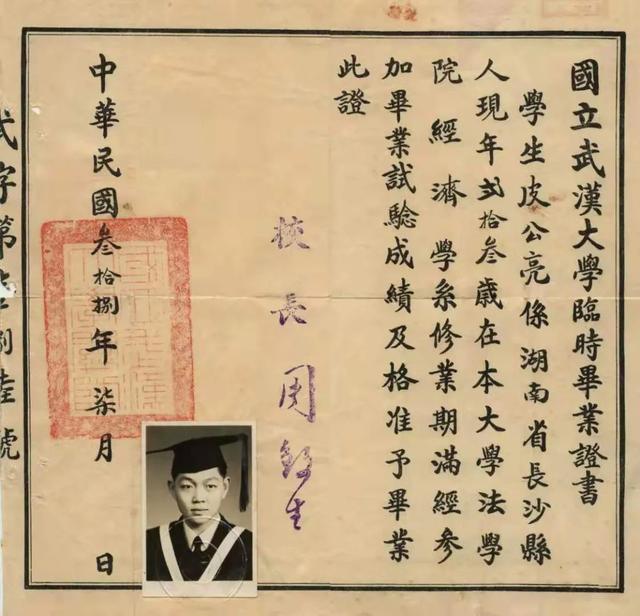 國立武漢大學臨時畢業證書
學生皮公亮係湖南省長沙縣
人現年弍拾叁歲在本大學法學
院經濟學系修業期滿經參
加畢業試驗成績及格准予畢業
此證
校長 周鯁生
中華民國叁拾捌年柒月 日